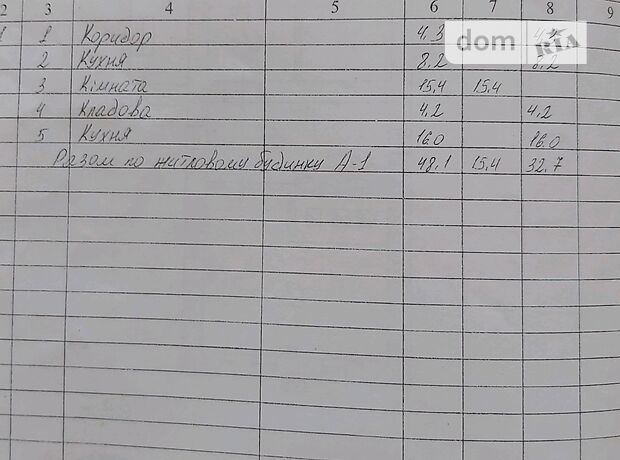 2 3 4 5 6 7 8 9
1 1 Коридор 4.3
2 Кухня 8.2 8.2
3 Кімната 15.4 15.4
4 Кладова 4.2 4.2
5 Кухня 16.0 16.0
Разом по житловому будинку А-1 48.1 15.4 32.7
dom RIA